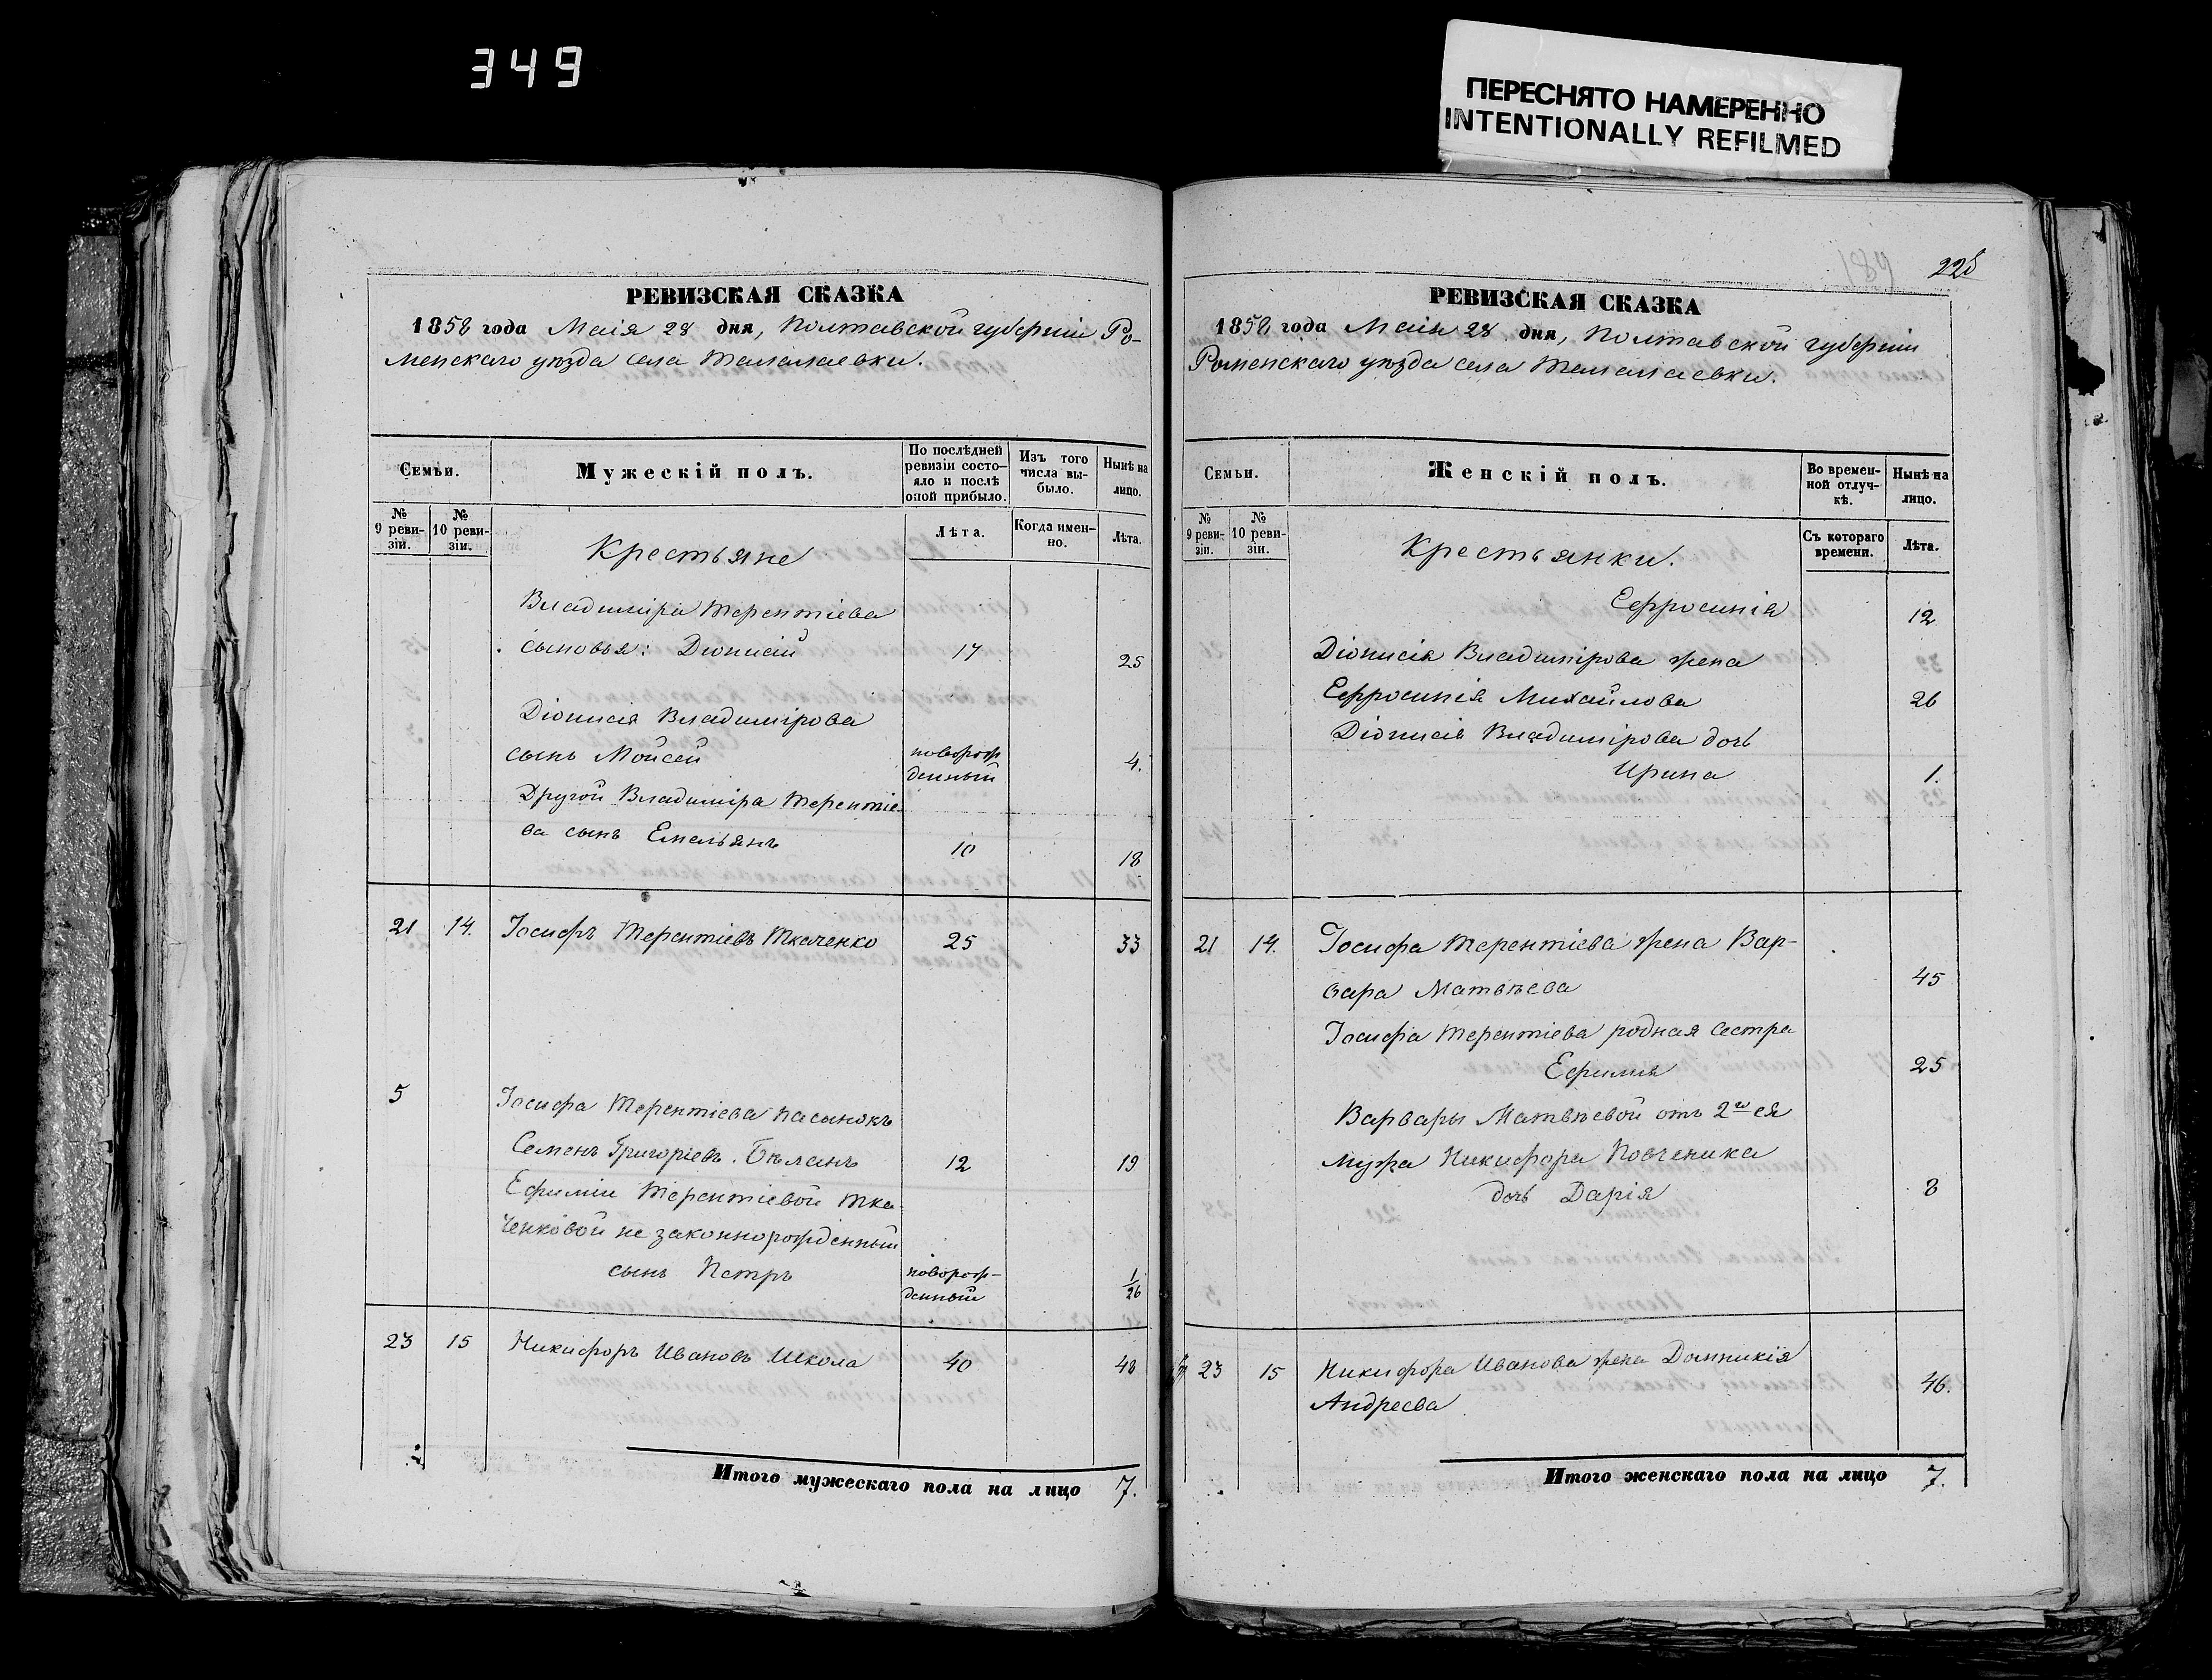 349
ПЕРЕСНЯТО НАМЕРЕННО
INTENTIONALLY REFILMED
РЕВИЗСКАЯ СКАЗКА
1858 года Маія 28 дня, Полтавской губерніи Ро-
менскаго уѣзда села Талалаевки.
Семьи.
Мужескій полъ.
По послѣдней
ревизіи состо-
яло и послѣ
оной прибыло.
Изъ того
числа вы-
было.
Нынѣ на
лицо.
№
9 реви-
зіи.
№
10 реви-
зіи.
Лѣта.
Когда имен-
но.
Лѣта.
Крестьяне
Владиміра Терентіева
сыновья: Діонисій 17 25
Діонисія Владимірова
сынъ Мойсей новорож 4.
денный
Другой Владиміра Терентіе-
ва сынъ Емельянъ 10 18
21 14. Іосифъ Терентіевъ Ткаченко 25 33
5 Іосифа Терентіева пасынокъ
Семенъ Григоріевъ Бѣланъ 12 19
Ефиміи Терентіевой Тка-
ченковой не законнорожденный
сынъ Петръ новорож- 1/26
денный
23 15 Никифоръ Ивановъ Школа 40 48
Итого мужескаго пола на лицо 7.
189 225
РЕВИЗСКАЯ СКАЗКА
1858 года Маія 28 дня, Полтавской губерніи
Роменскаго уѣзда села Талалаевки.
Семьи.
Женскій полъ.
Во времен-
ной отлуч-
кѣ.
Нынѣ на
лицо.
№
9 реви-
зіи.
№
10 реви-
зіи.
Съ котораго
времени.
Лѣта.
Крестьянки.
Ефросинія 12
Діонисія Владимірова жена
Ефросинія Михайлова 26
Діонисія Владимірова дочь
Ирина 1.
21 14. Іосифа Терентіева жена Вар-
вара Матвѣева 45
Іосифа Терентіева родная сестра
Ефимія 25
Варвары Матвѣевой отъ 2го ея
мужа Никифора
дочь Дарія 8
23 15 Никифора Иванова жена Домникія
Андреева 46.
Итого женскаго пола на лицо 7.